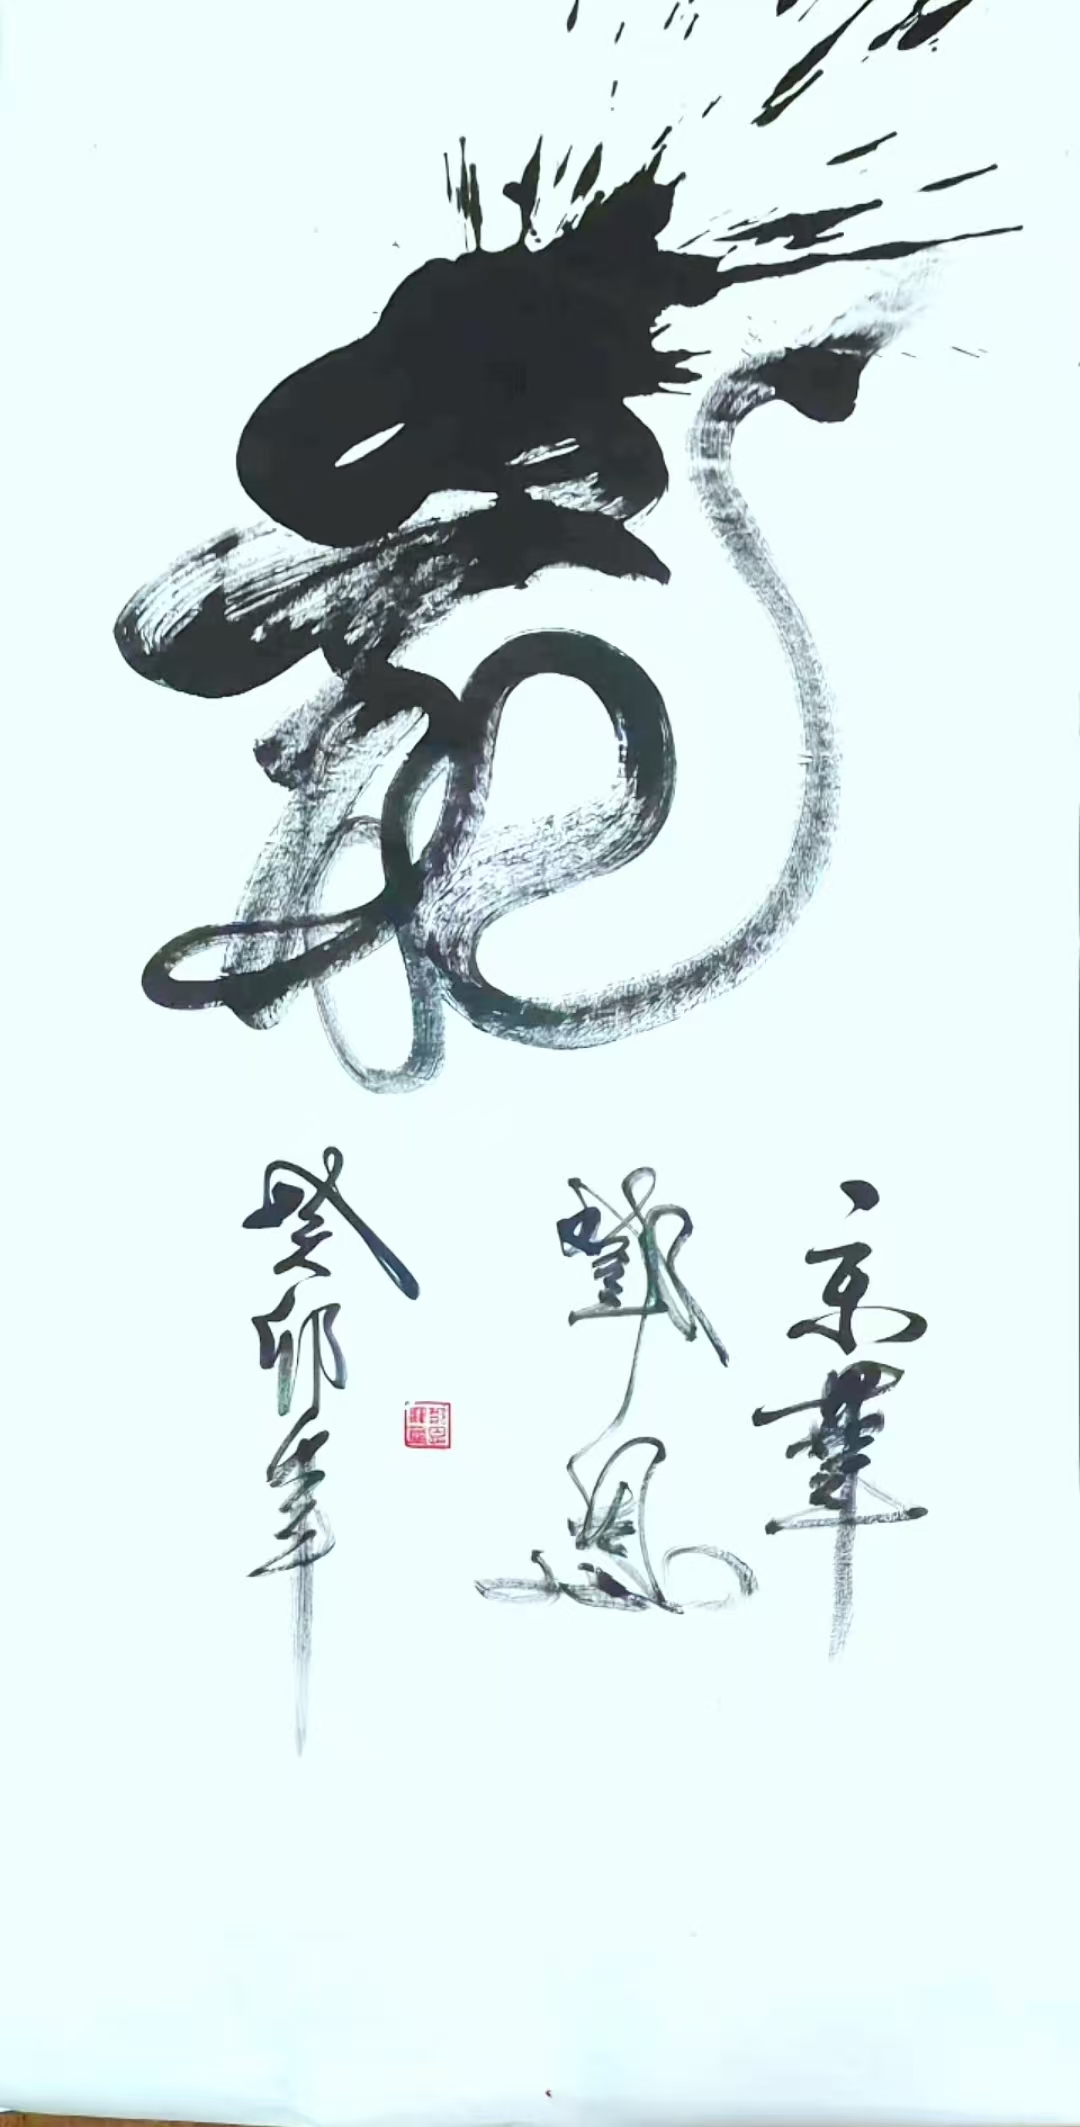 龍
京華
鄧恩
癸卯年